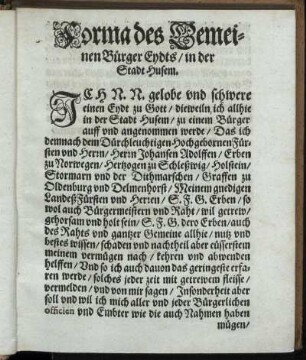 Forma des Gemei-
nen Bürger Eydts / in der
Stadt Husem.
ICH N. N. gelobe vnd schwere
einen Eydt zu Gott / dieweiln ich allhie
in der Stadt Husem / zu einem Bürger
auff vnd angenommen werde / Das ich
demnach dem Durchleuchtigen Hochgebornen Für-
sten vnd Herrn / Herrn Johansen Adolffen / Erben
zu Norwegen / Hertzogen zu Schleßwig / Holstein /
Stormarn vnd der Dithmarschen / Graffen zu
Oldenburg vnd Delmenhorst / Meinem gnedigen
Landeß Fürsten vnd Herren / S. F. G. Erben / so
wol auch Bürgermeistern vnd Raht / wil getrew /
gehorsam vnd holt sein / S. F. G. dero Erben / auch
des Rahts vnd gantzer Gemeine allhie / nutz vnd
bestes wissen / schaden vnd nachtheil aber eüsserstem
meinem vermügen nach / kehren vnd abwenden
helffen / Vnd so ich auch dauon das geringeste erfa-
ren werde / solches jeder zeit mit getrewem fleisse /
vermelden / vnd von mir sagen / Insonderheit aber
soll vnd wil ich mich aller vnd jeder Bürgerlichen
officien vnd Embter wie die auch Nahmen haben
mügen /